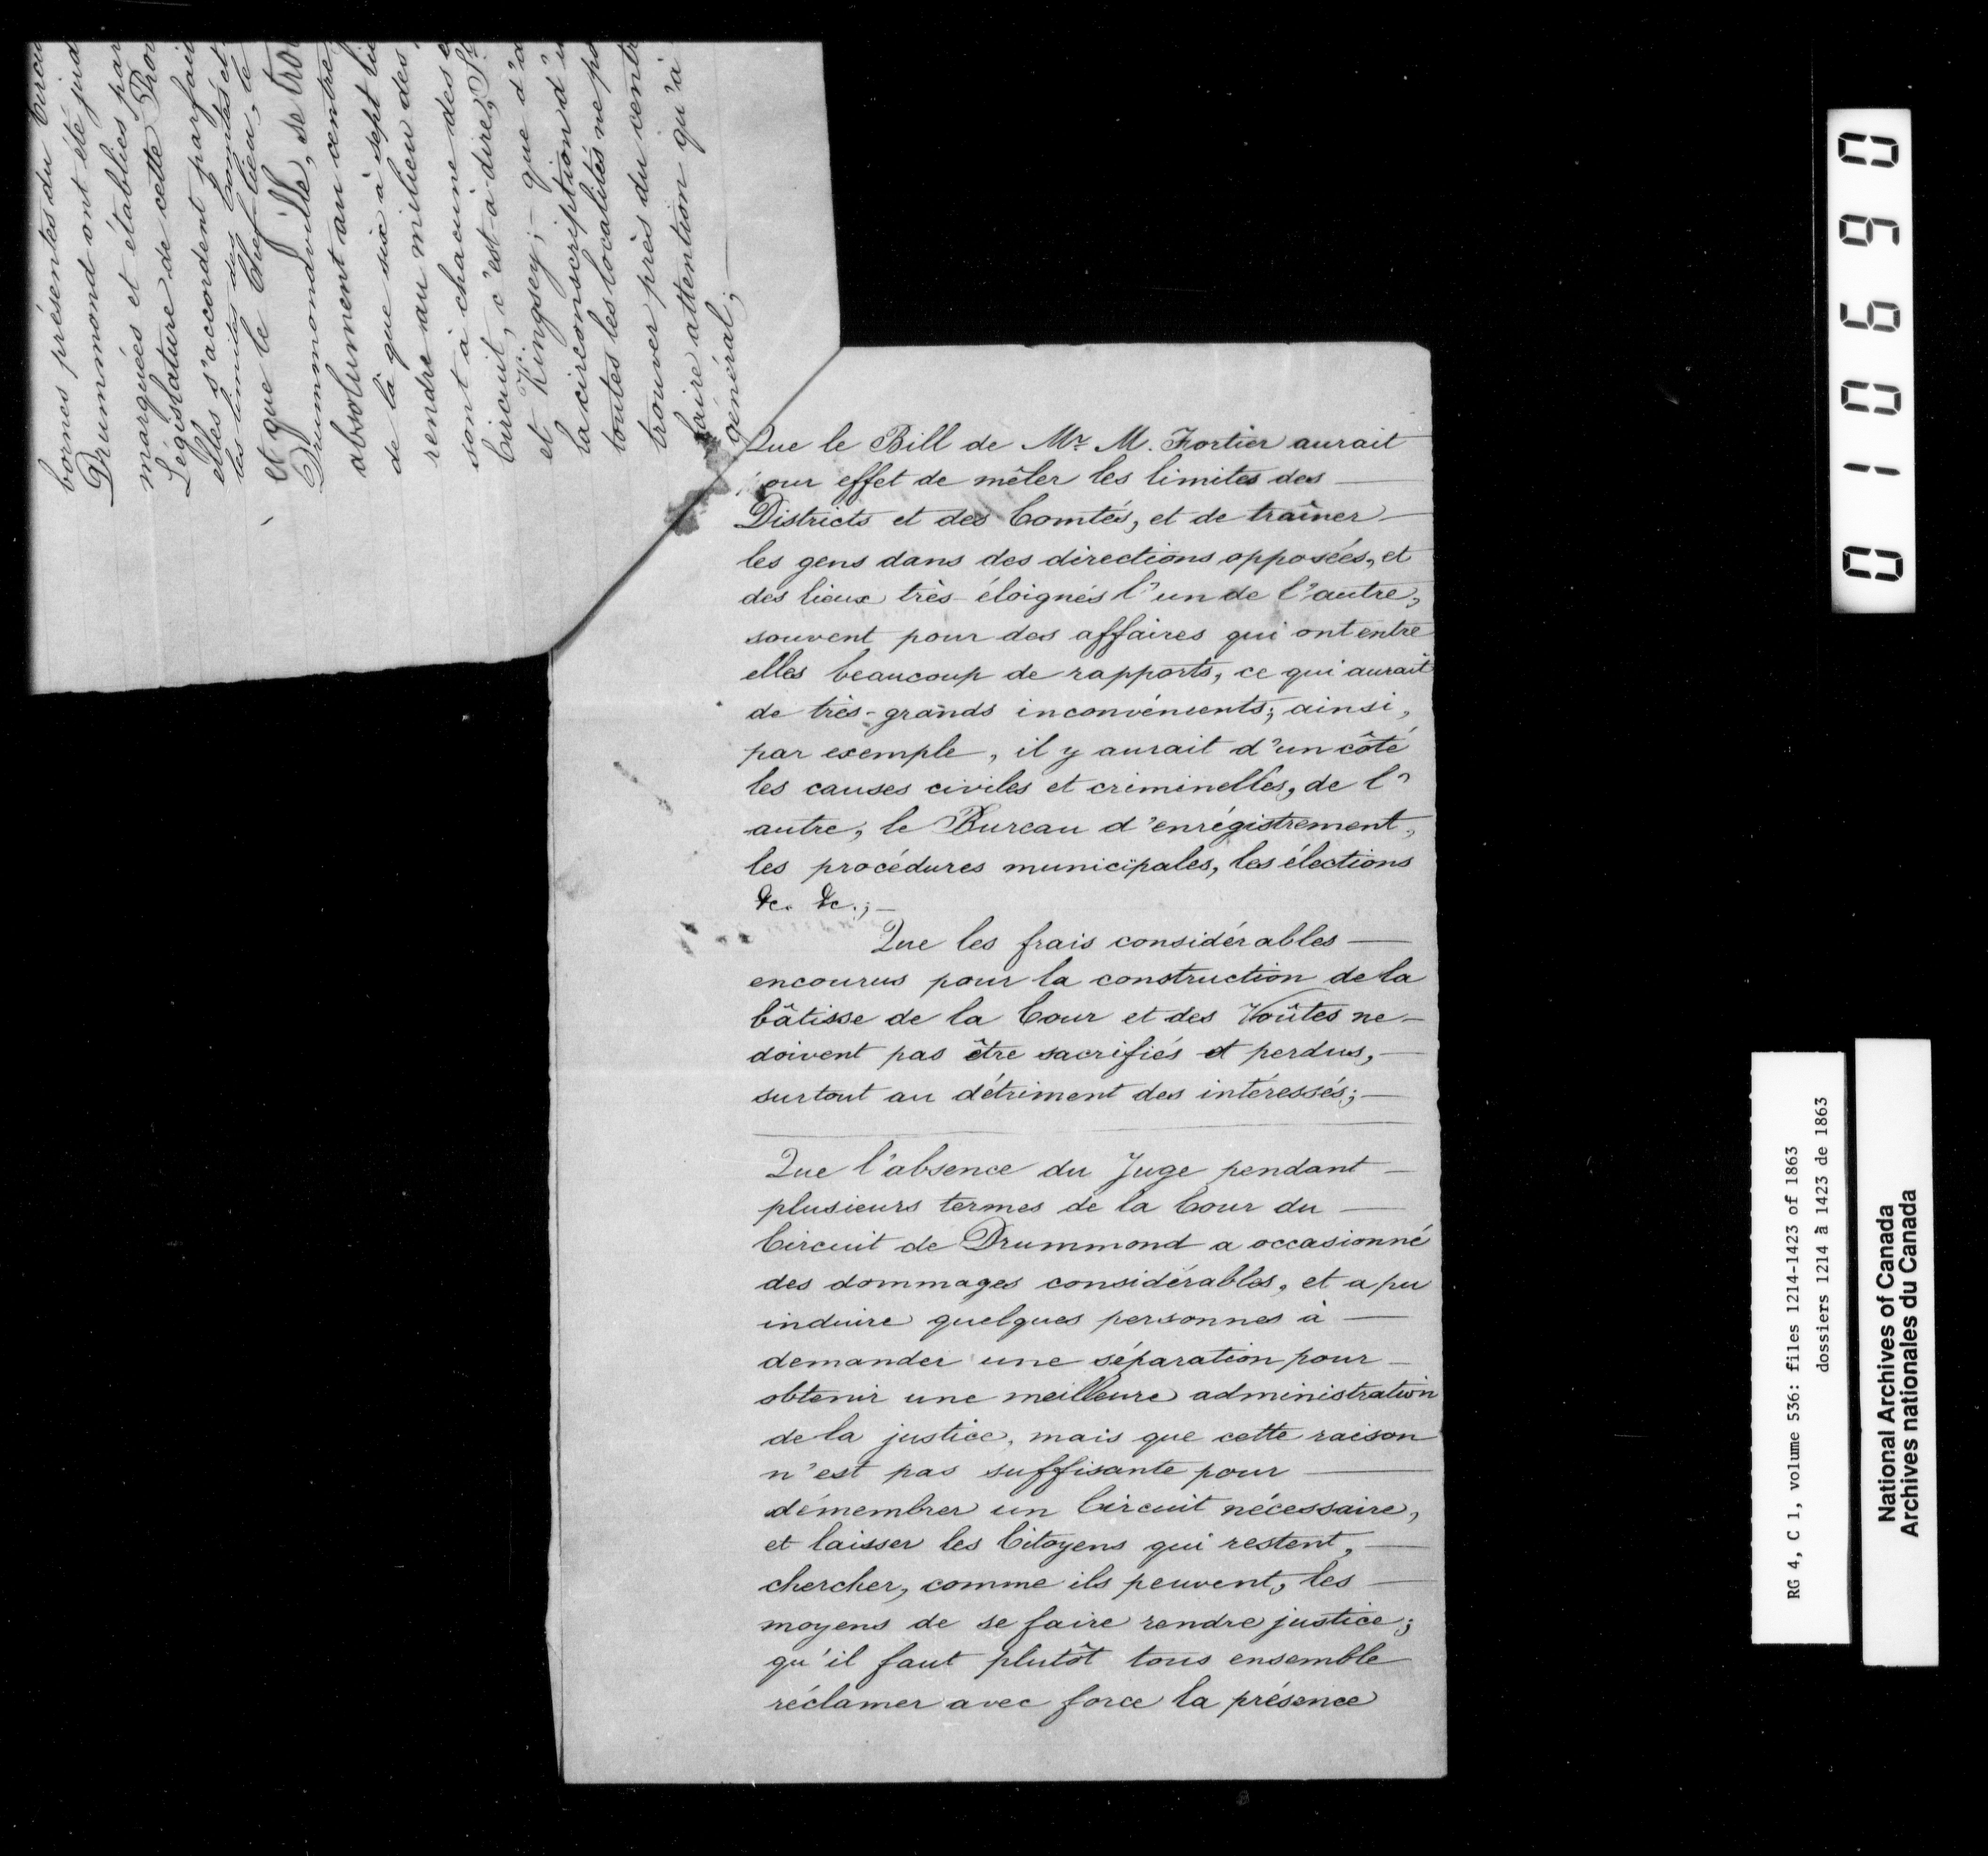 bornes présentes du Circu
Drummond ont été jud
marquées et établies par
Législature de cette Prov
elles s'accordent parfait
les limites des Comtés et
et que le Chef lieu, le
Drummondville, se trou
absolument au centre
de là que six à sept lie
rendre au milieu des
sont à chacune des e
Circuit, c'est-à-dire, St
et Kingsey; - que d'a
la circonscription d'u
toutes les localités ne po
trouver près du centr
faire attention qu'à
général; —
Que le Bill de Mr. M. Fortier aurait
pour effet de mêler les limites des —
Districts et des Comtés, et de traîner —
les gens dans des directions opposées, et
des lieux très-éloignés l'un de l'autre,
souvent pour des affaires qui ont entre
elles beaucoup de rapports, ce qui aurait
de très-grands inconvénients; ainsi,
par exemple, il y aurait d'un côté
les causes civiles et criminelles, de l'
autre, le Bureau d'enrégistrement,
les procédures municipales, les élections
&c. &c.; —
Que les frais considérables —
encourus pour la construction de la
bâtisse de la Cour et des Voûtes ne —
doivent pas être sacrifiés et perdus, —
surtout au détriment des intéressés; —
Que l'absence du Juge pendant —
plusieurs termes de la Cour du —
Circuit de Drummond a occasionné
des dommages considérables, et a pu
induire quelques personnes à —
demander une séparation pour —
obtenir une meilleure administration
de la justice, mais que cette raison
n'est pas suffisante pour —
démembrer un Circuit nécessaire,
et laisser les Citoyens qui restent, —
chercher, comme ils peuvent, les —
moyens de se faire rendre justice;
qu'il faut plutôt tous ensemble
réclamer avec force la présence
010690
RG 4, C 1, volume 536: files 1214-1423 of 1863
dossiers 1214 à 1423 de 1863
National Archives of Canada
Archives nationales du Canada